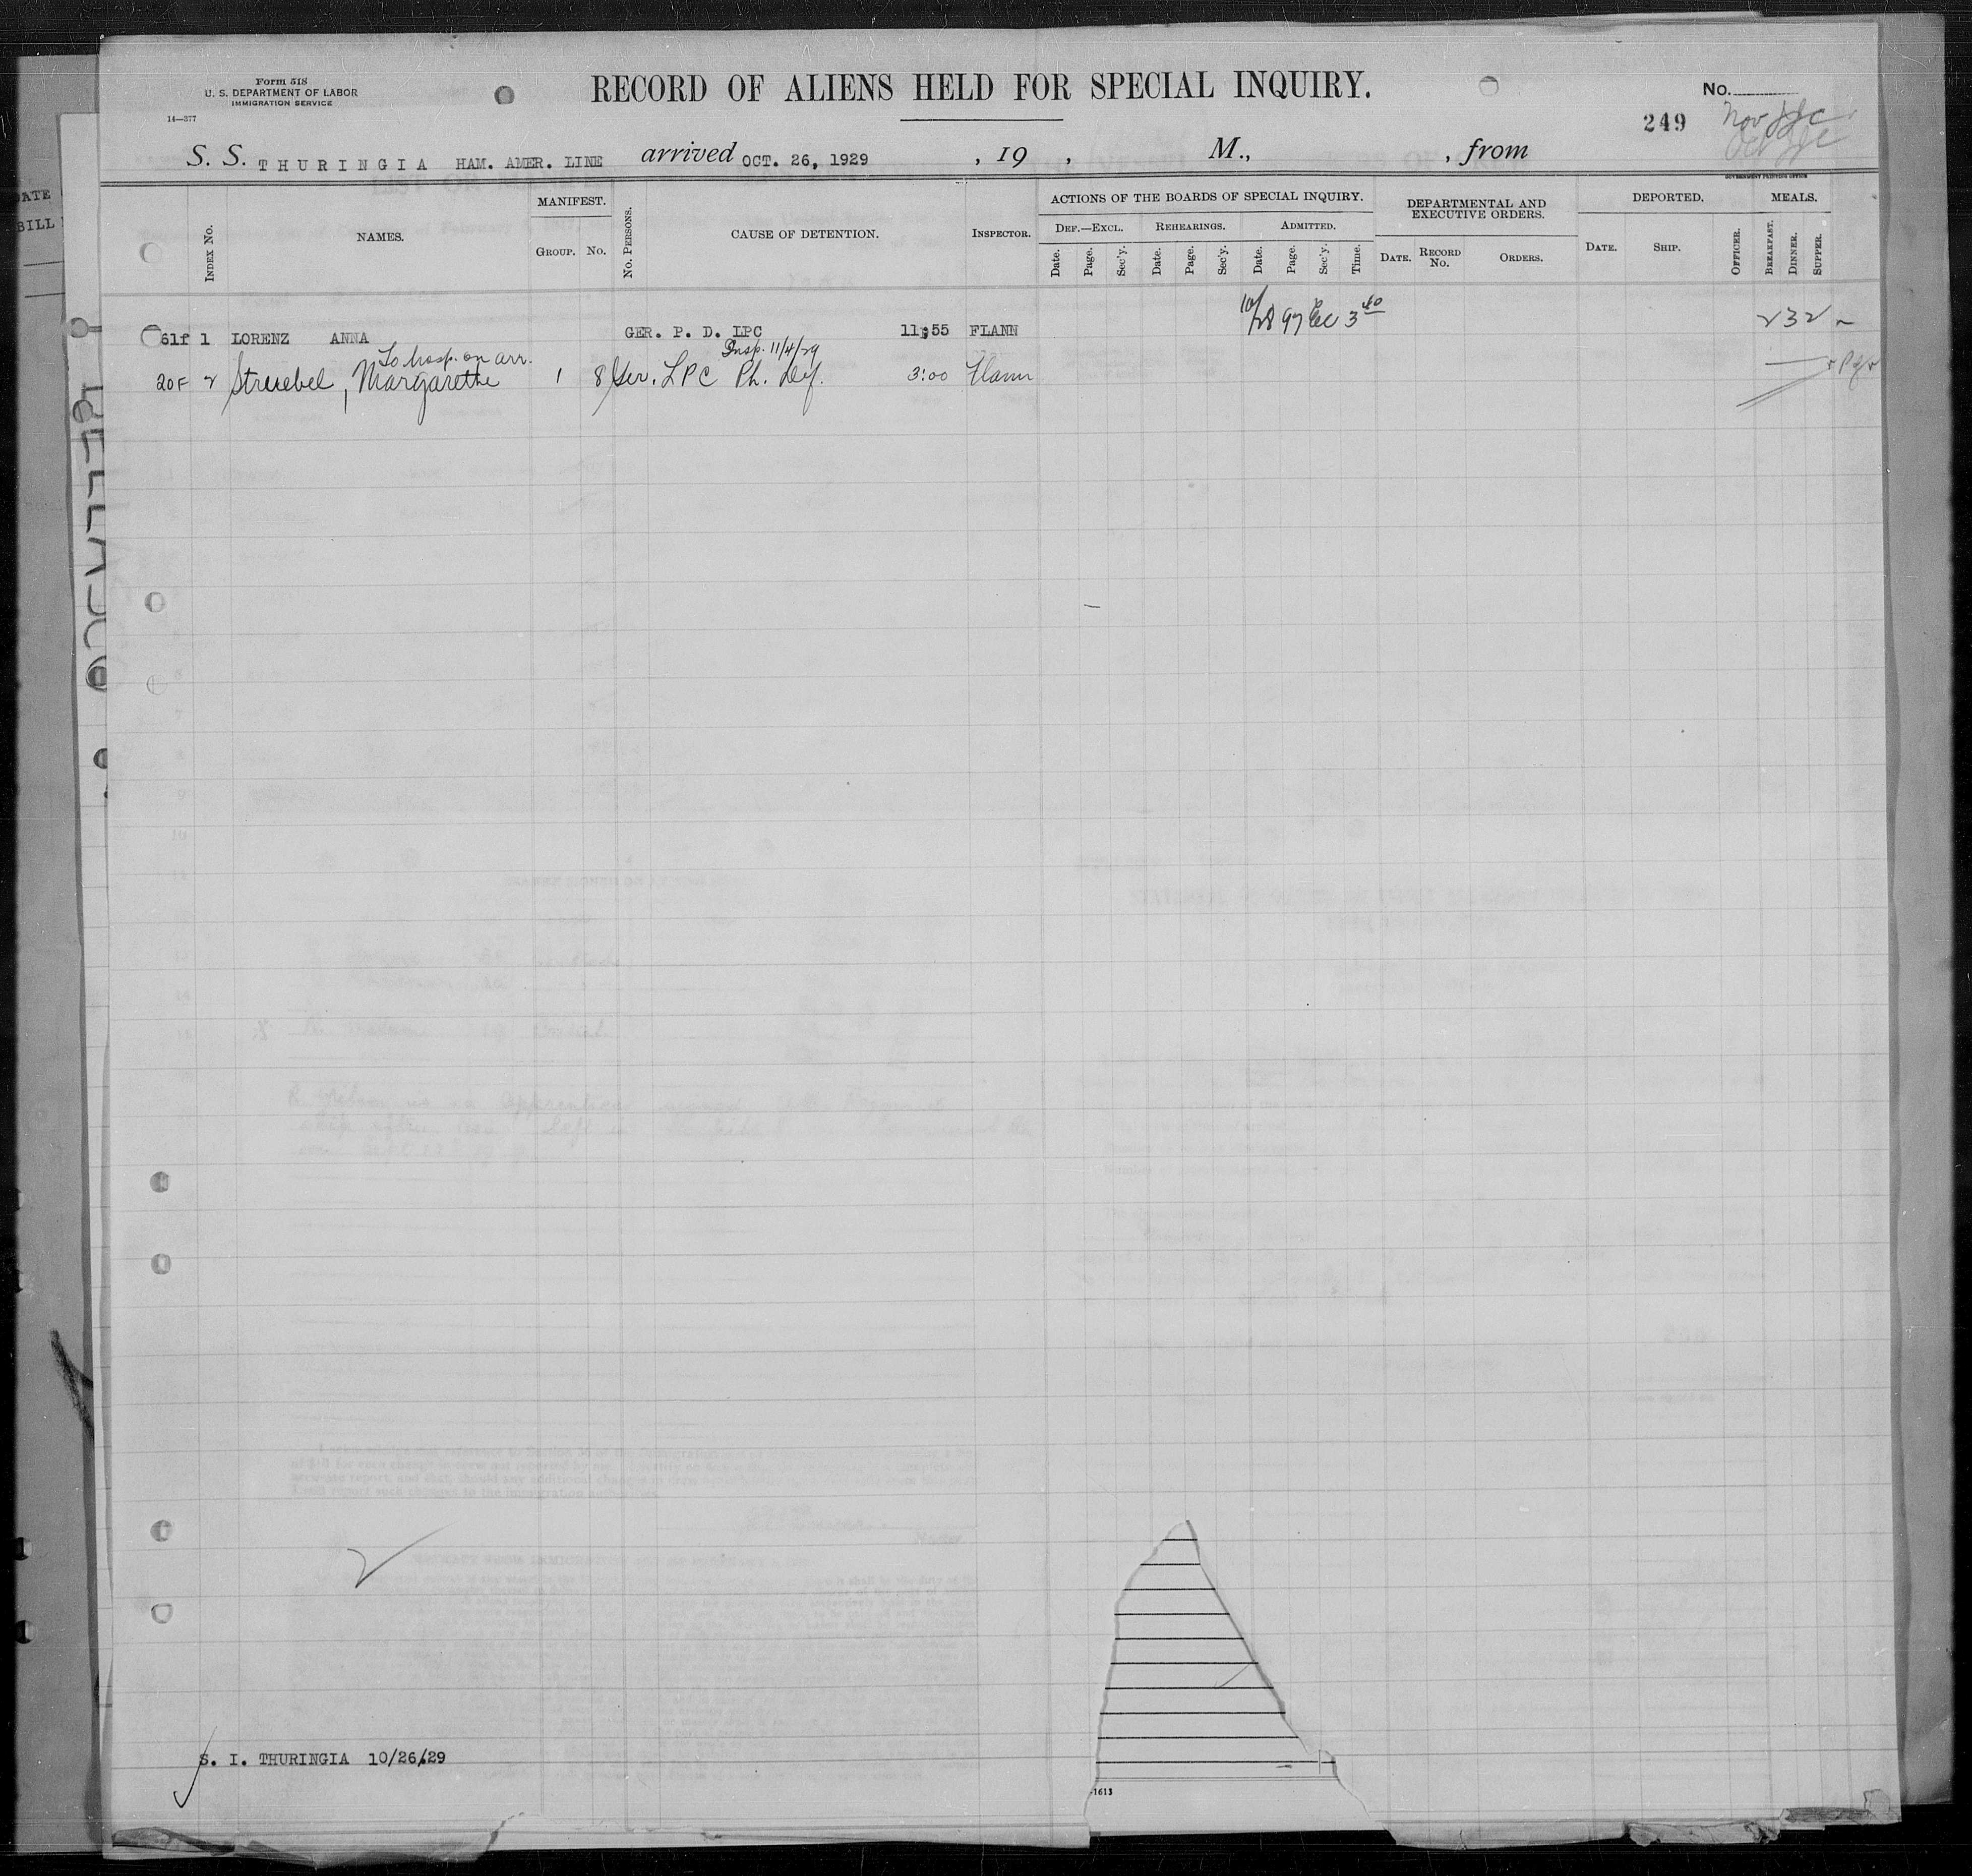 Form 518
U. S. DEPARTMENT OF LABOR
IMMIGRATION SERVICE
14—377
RECORD OF ALIENS HELD FOR SPECIAL INQUIRY.
No.
249
Nov
S. S. THURINGIA HAM. AMER. LINE arrived OCT. 26, 1929 , 19 , M., , from
GOVERNMENT PRINTING OFFICE
DATE
BILL
INDEX No.
NAMES.
MANIFEST.
GROUP. No.
No. PERSONS.
CAUSE OF DETENTION.
INSPECTOR.
ACTIONS OF THE BOARDS OF SPECIAL INQUIRY.
DEF.—EXCL. REHEARINGS. ADMITTED.
Date. Page. Sec'y. Date. Page. Sec'y. Date. Page. Sec'y. Time.
DEPARTMENTAL AND
EXECUTIVE ORDERS.
DATE. RECORD No. ORDERS.
DEPORTED.
DATE. SHIP.
OFFICER.
MEALS.
BREAKFAST. DINNER. SUPPER.
61f 1 LORENZ ANNA GER. P. D. LPC 11;55 FLANN 10/28 97 Eec 3 40 2 3 2
To hosp. on arr. Insp. 11/4/29
20F 2 Struebel, Margarethe 1 8 Ger. LPC Ph. Def. 3:00 Flann
S. I. THURINGIA 10/26/29
-1613